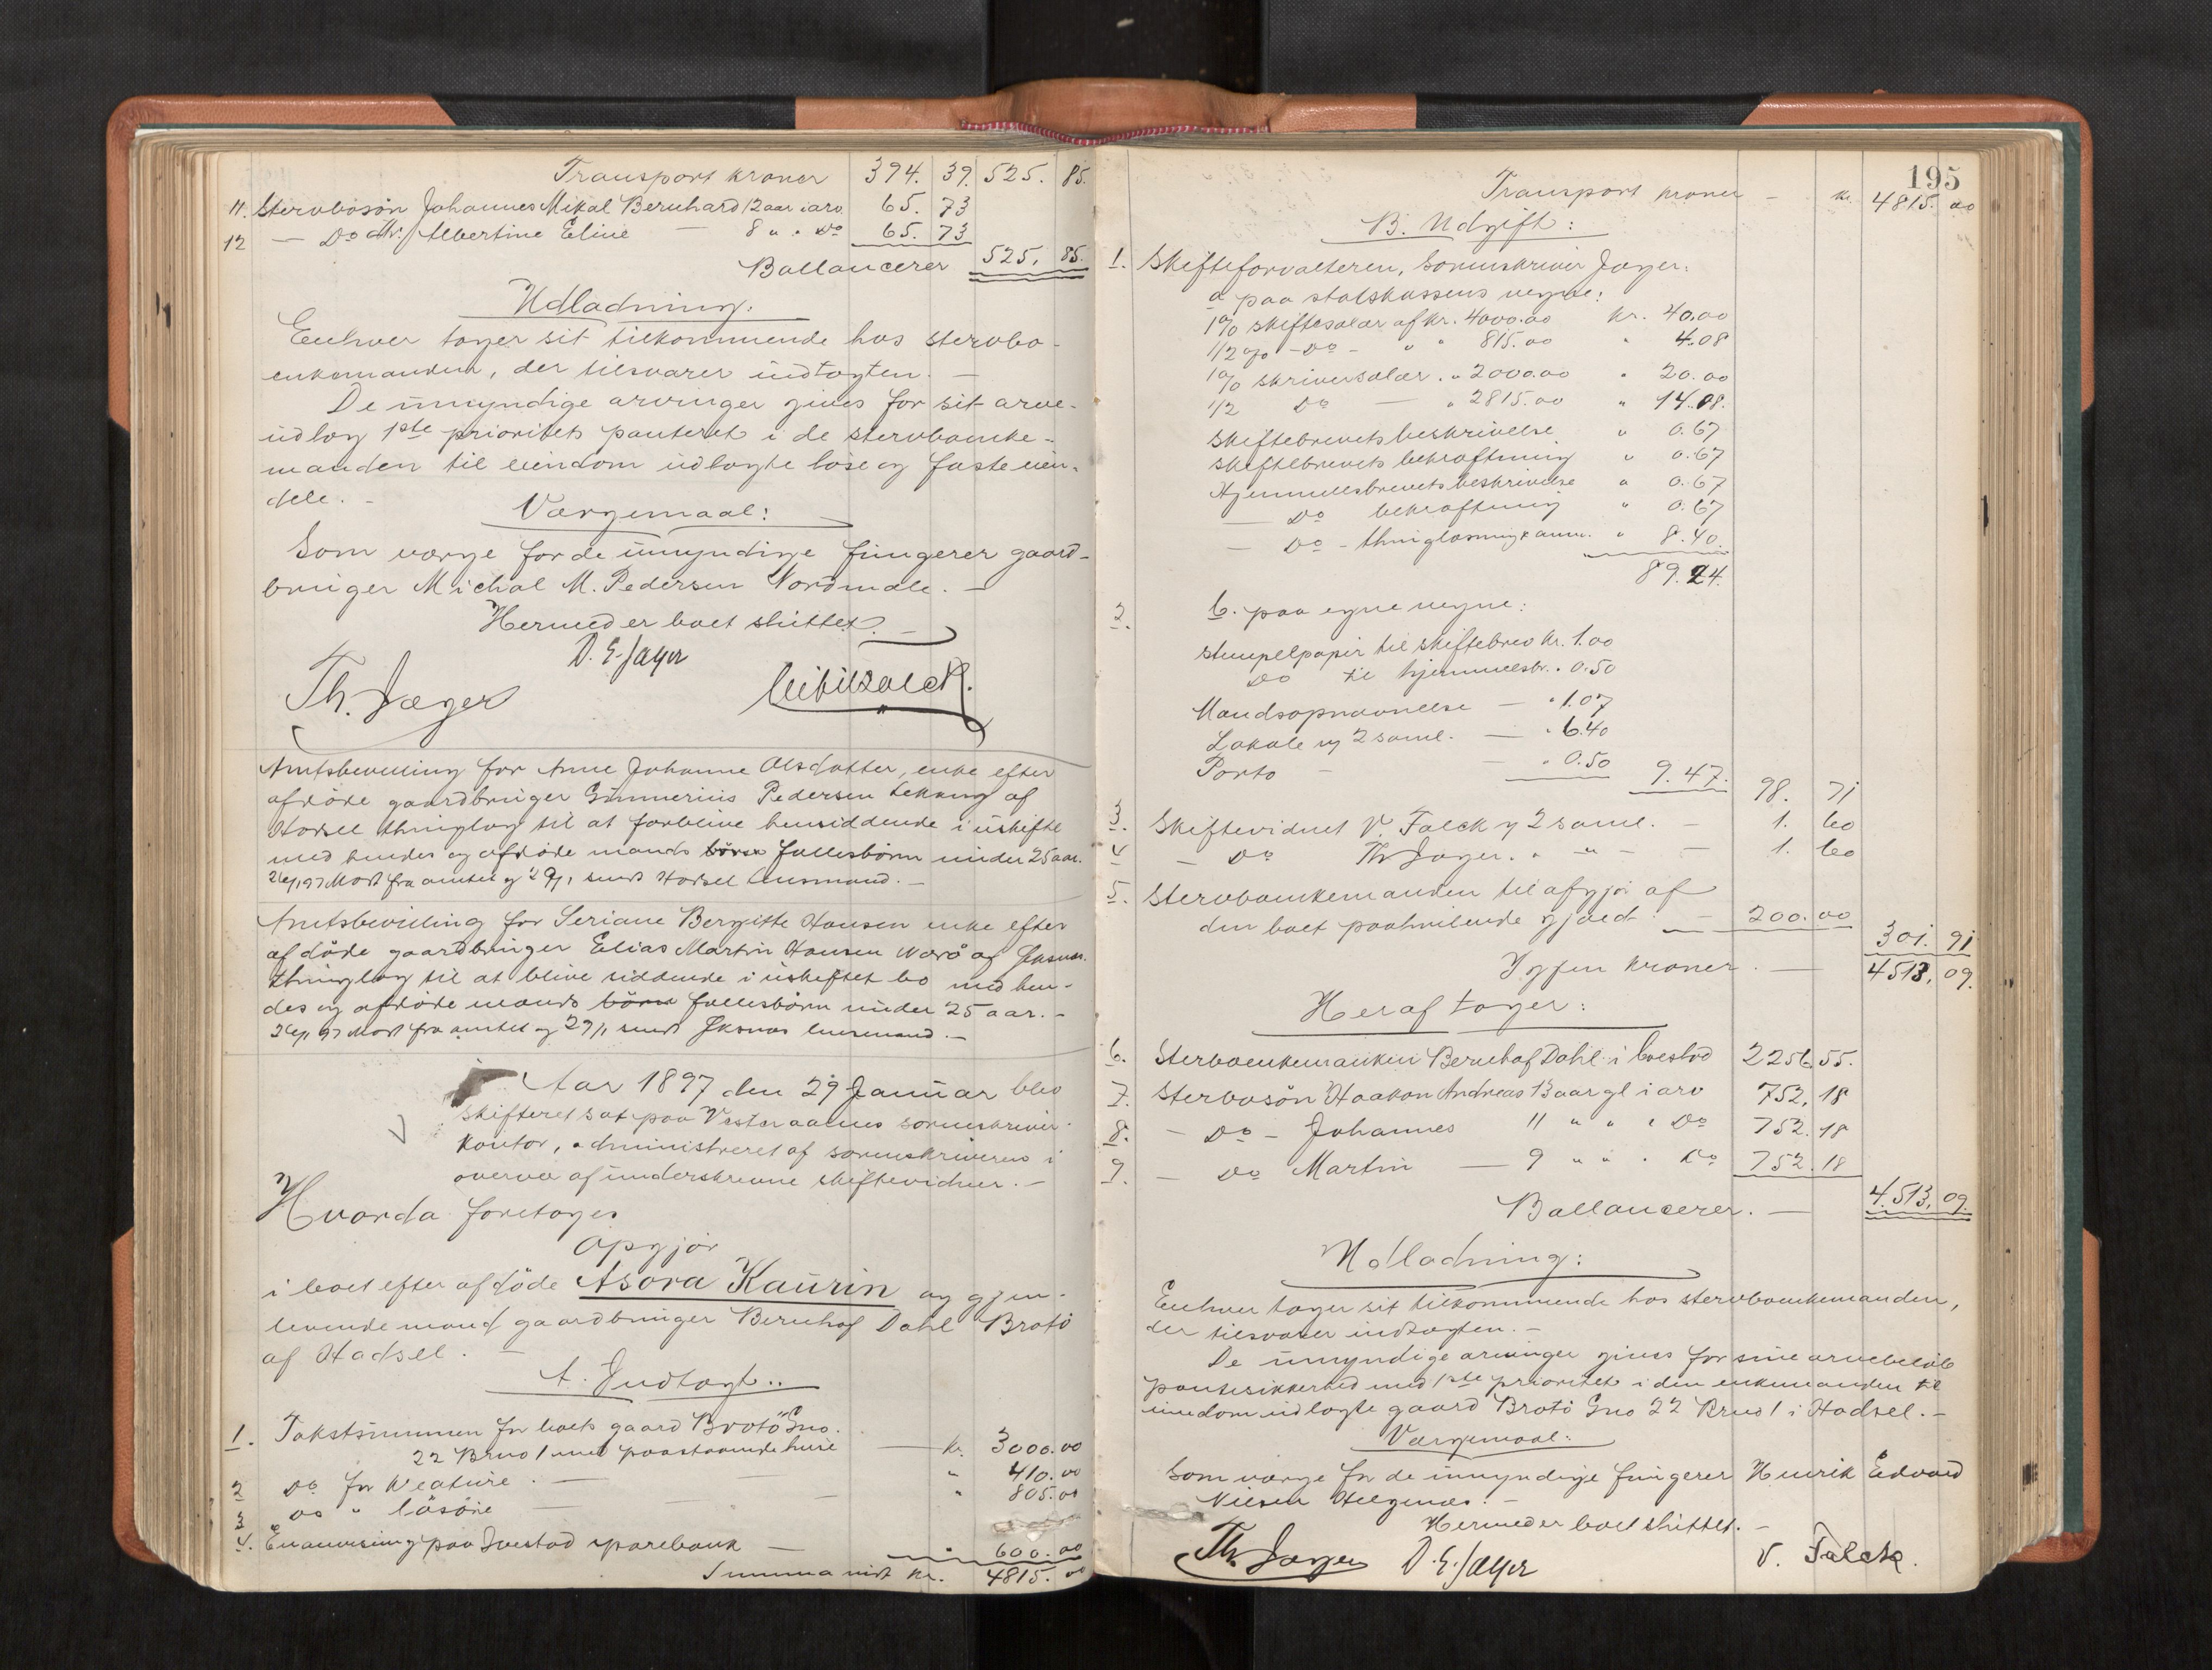 Transport kroner 394. 39. 525. 85.
11. Stervbosøn Johannes Mikal Bernhard 12 aar i arv 65. 73
12 — Do dtr. Albertine Eline — 8 " " Do 65. 73
Ballancerer 525. 85.
Udladning:
Enhver tager sit tilkommende hos stervbo-
enkemanden, der tilsvarer indtægten. —
De umyndige arvinger gives for sit arve-
udlæg 1ste prioritets panteret i de stervboenke-
manden til eiendom udlagte løse og faste eien-
dele. —
Værgemaal:
Som værge for de umyndige fungerer gaard-
bruger Michal M. Pedersen Nordmale. —
Hermed er boet sluttet. —
D. E. Jæger
Th. Jæger
Amtsbevilling for Anne Johanne Olsdatter, enke efter
afdøde gaardbruger Gunnerius Pedersen Lekang af
Hadsel thinglag til at forblive hensiddende i uskifte
med hendes og afdøde mands børn fællesbørn under 25 aar.
26/1 97 Modt fra amtet og 29/1 sendt Hadsel lensmand. —
Amtsbevilling for Seriane Bergitte Hansen enke efter
afdøde gaardbruger Elias Martin Hansen Værø af Øksnes
thinglag til at blive siddende i uskiftet bo med hen-
des og afdøde mands børn fællesbørn under 25 aar. —
26/1 97 Modt fra amtet og 29/1 sendt Øksnes lensmand. —
Aar 1897 den 29 Januar blev
skifteret sat paa Vesteraalens sorenskriver-
kontor, administreret af sorenskriveren i
overvær af underskrevne skiftevidner. —
Hvorda foretoges
Opgjør
i boet efter afdøde Asora Kaurin og gjen-
levende mand gaardbruger Bernhof Dahl Brotø
af Hadsel. —
A. Indtægt:
1. Takstsummen for boets gaard Brotø Gno.
22 Brno 1 med paastaaende huse — kr. 3000.00
2 Do for kreature. — " 410.00
3 Do " løsøre — " 805.00
4. En anvisning paa Ivestad sparebank — " 600.00
Summa indt kr. 4815. 00
195
Transport kroner — kr. 4815. 00
B. Udgift:
1. Skifteforvalteren, Sorenskriver Jæger:
a paa statskassens vegne:
1% skiftesalær af kr. 4000.00 kr. 40.00
1/2% — Do — " " 815.00 " 4.08
1% skriversalær. " 2000.00 " 20.00
1/2 Do — " 2815.00 " 14.08.
Skiftebrevets beskrivelse " 0.67
Skiftebrevets bekræftning " 0.67
Hjemmelsbrevets beskrivelse " 0.67
— Do bekræftning " 0.67
— Do — thinglæsning & ann. " 8.40.
89.24.
2. b. paa egne vegne:
Stempelpapir til skiftebrev kr. 1.00
Do til hjemmelsbr. " 0.50
Mandsopnævnelse — " 1.07
Lokale og 2 saml. — " 6.40
Porto — — " 0.50 9.47. 98. 71
3. Skiftevidnet V. Falck og 2 saml. — 1. 60
4 — Do Th Jæger. " " — — 1. 60
5. Stervboenkemanden til afgjør af
den boet paahvilende gjæld. — 200.00
301. 91
Igjen kroner. — 4513. 09.
Heraf tager:
6. Stervboenkemanden Bernhof Dahl i boeslod 2256 55.
7. Stervbosøn Haakon Andreas 13 aar gl i arv 752. 18
8. — Do — Johannes 11 " " " Do 752. 18
9. — Do Martin — 9 " " " Do 752. 18
Ballancerer. — 4.513. 09.
Udladning:
Enhver tager sit tilkommende hos stervboenkemanden,
der tilsvarer indtægten. —
De umyndige arvinger gives for sine arvebeløb
pantesikkerhed med 1ste prioritet i den enkemanden til
eiendom udlagte gaard Brotø Gno 22 Brno 1 i Hadsel. —
Værgemaal:
Som værge for de umyndige fungerer Henrik Edvard
Nilsen Helgenæs. —
Hermed er boet sluttet. —
Th. Jæger D. E. Jæger V. Falck.